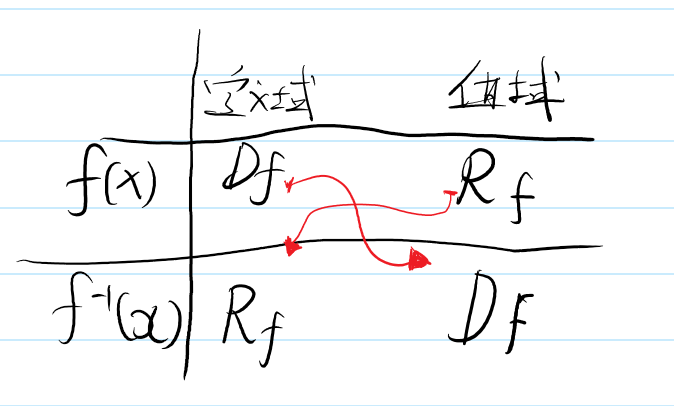 定义域 值域
f(x) Df Rf
f⁻¹(x) Rf Df